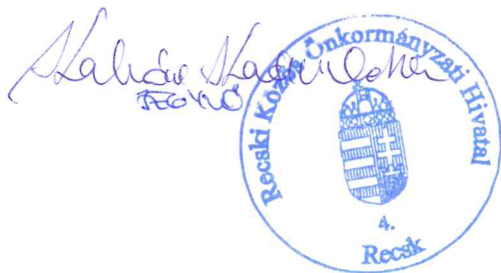 JEGYZŐ
Recski Közös Önkormányzati Hivatal
4.
Recsk